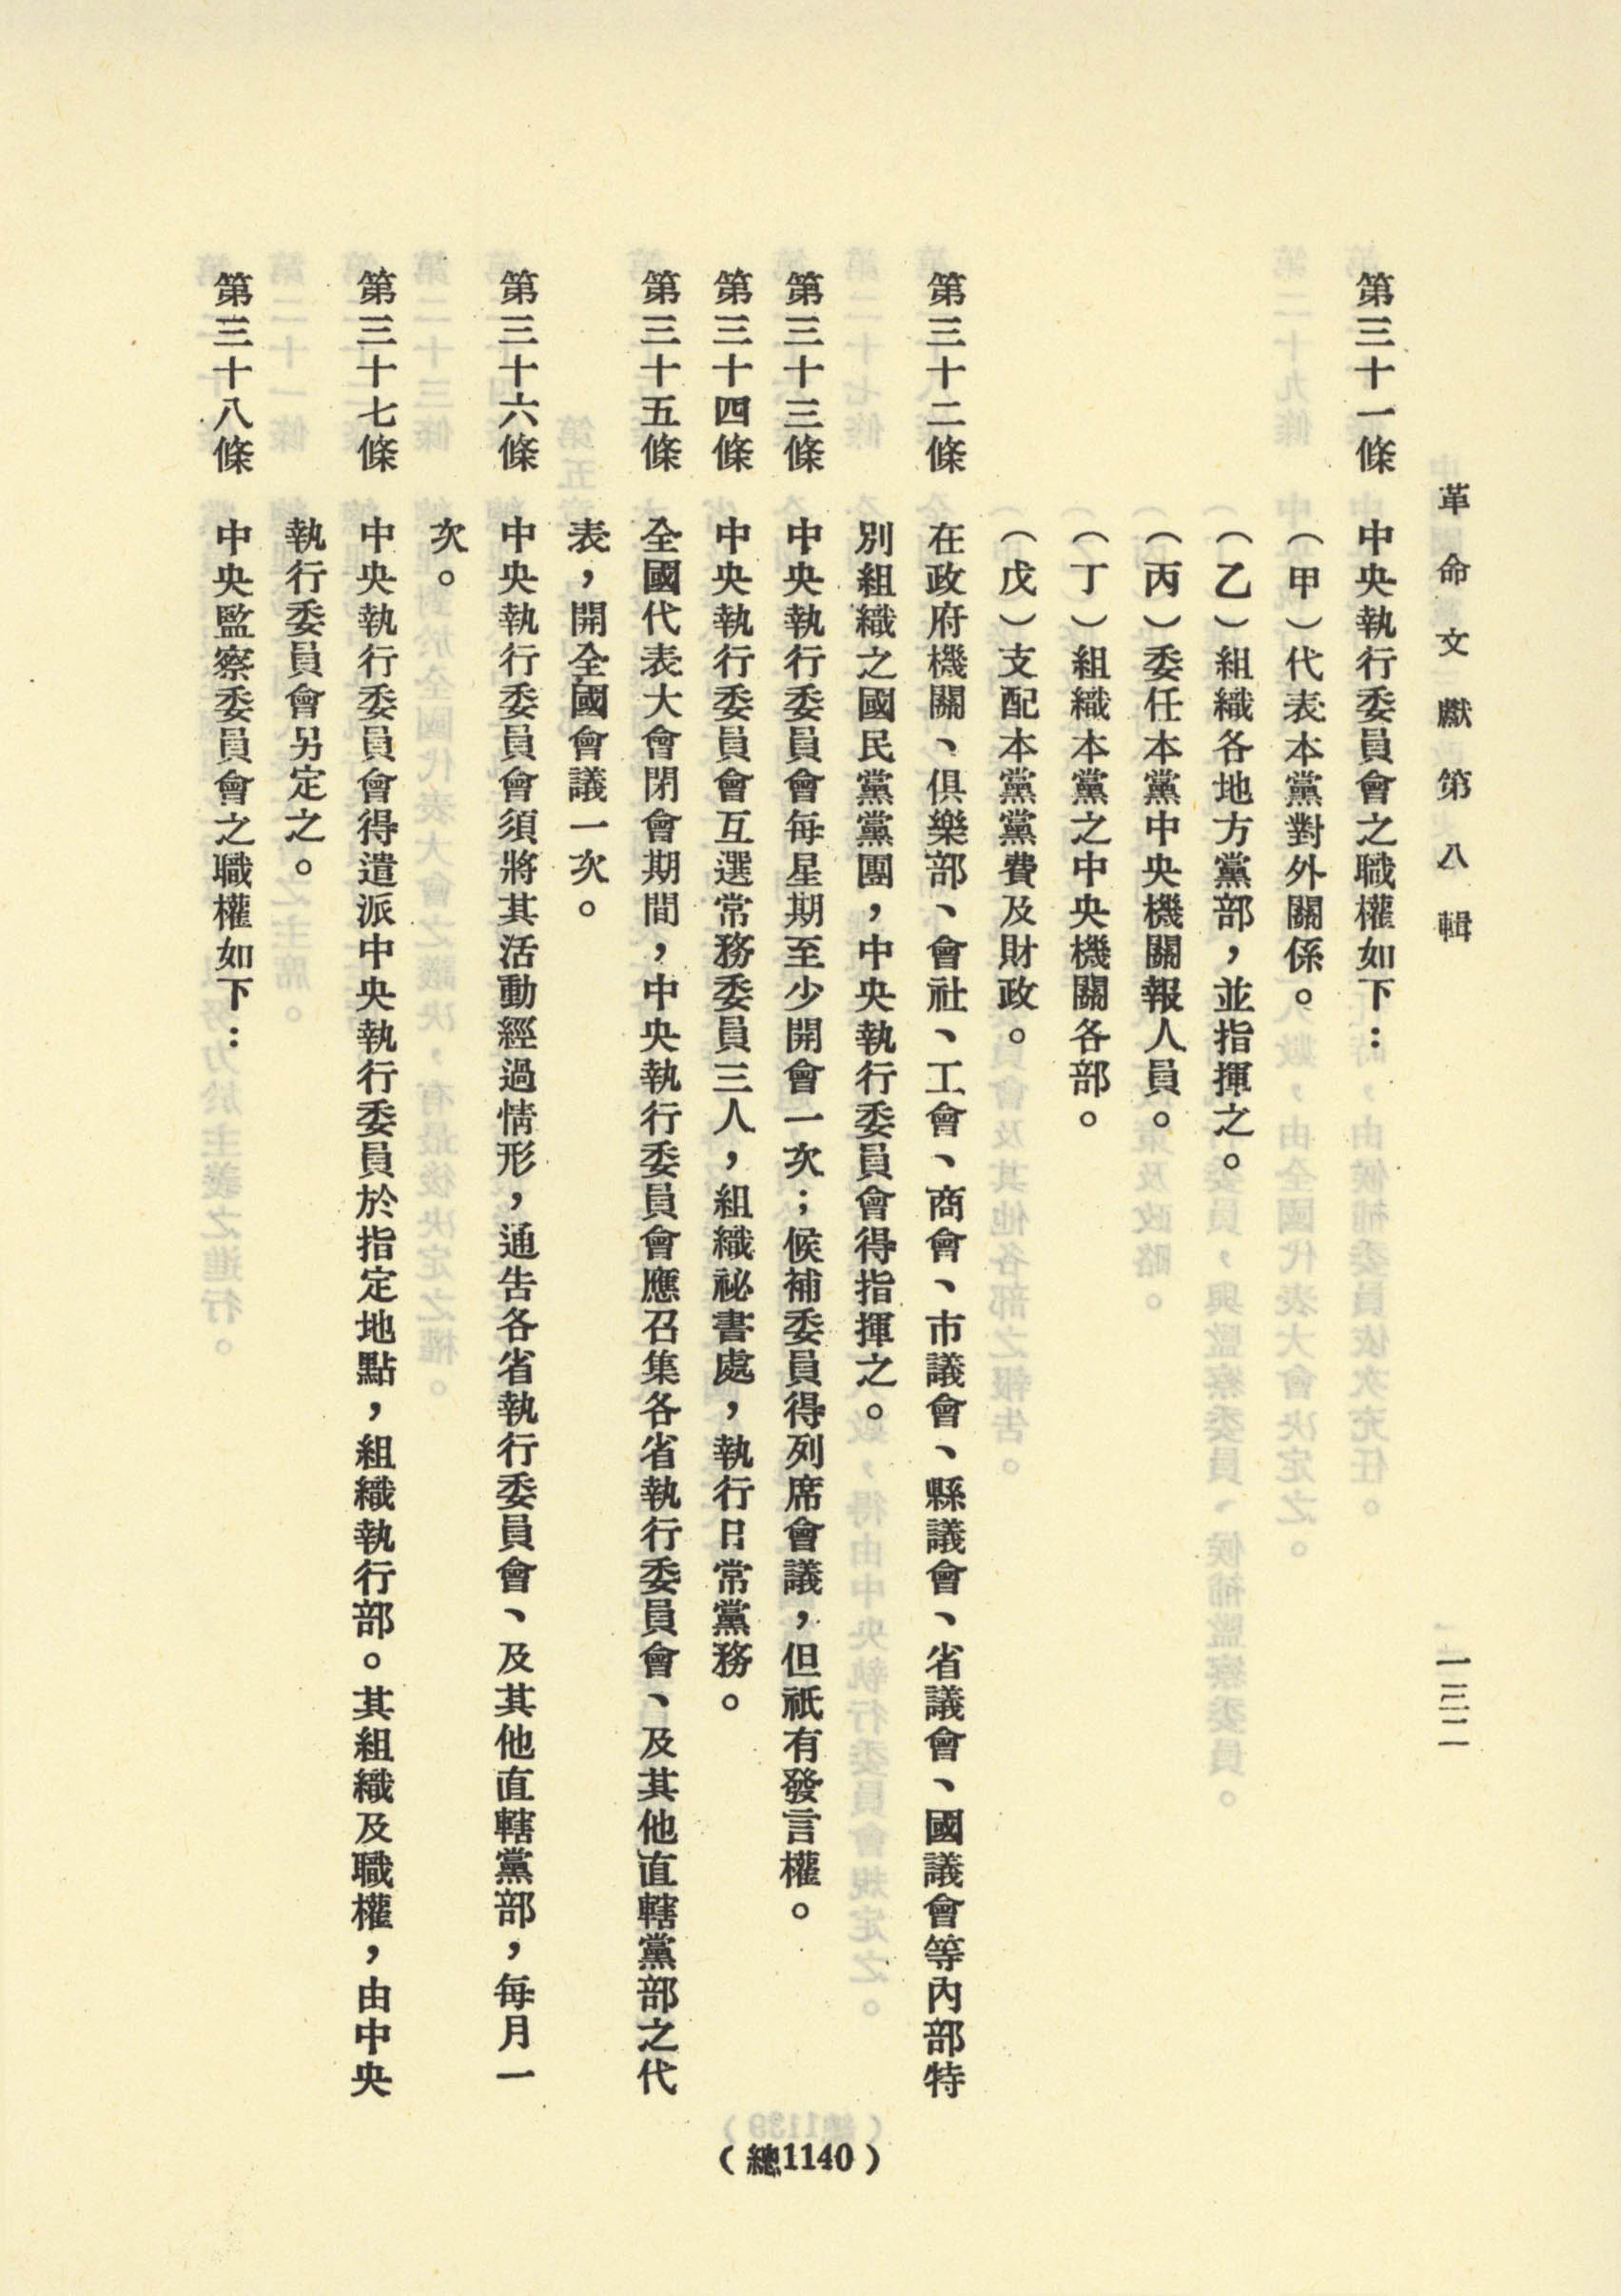 革命文獻第八輯
一三二
第三十一條　中央執行委員會之職權如下：
（甲）代表本黨對外關係。
（乙）組織各地方黨部，並指揮之。
（丙）委任本黨中央機關報人員。
（丁）組織本黨之中央機關各部。
（戊）支配本黨黨費及財政。
第三十二條　在政府機關、俱樂部、會社、工會、商會、市議會、縣議會、省議會、國議會等內部特
別組織之國民黨黨團，中央執行委員會得指揮之。
第三十三條　中央執行委員會每星期至少開會一次；候補委員得列席會議，但祇有發言權。
第三十四條　中央執行委員會互選常務委員三人，組織祕書處，執行日常黨務。
第三十五條　全國代表大會閉會期間，中央執行委員會應召集各省執行委員會、及其他直轄黨部之代
表，開全國會議一次。
第三十六條　中央執行委員會須將其活動經過情形，通告各省執行委員會、及其他直轄黨部，每月一
次。
第三十七條　中央執行委員會得遣派中央執行委員於指定地點，組織執行部。其組織及職權，由中央
執行委員會另定之。
第三十八條　中央監察委員會之職權如下：
（總1140）